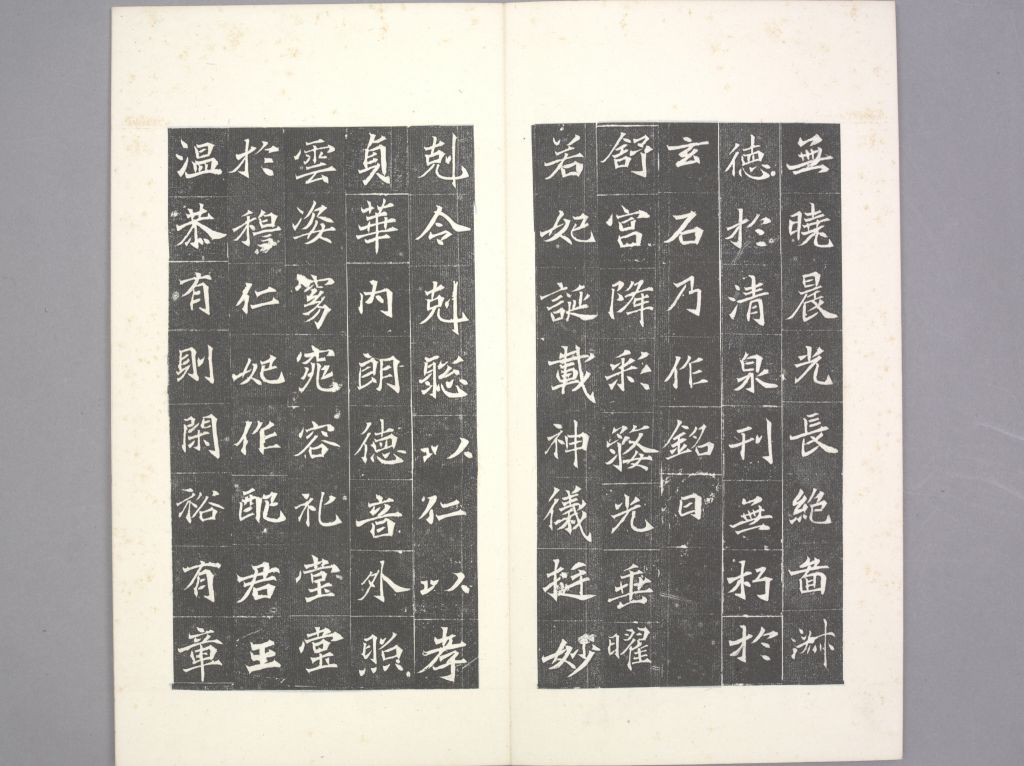 無曉晨光長絕啚淑
德於清泉刊無朽於
玄石乃作銘曰
舒宮降彩婺光垂曜
若妃誕載神儀挺妙
剋令剋聡以仁以孝
貞華內朗德音外照
雲姿窈窕容礼堂堂
於穆仁妃作配君王
温恭有則閑裕有章